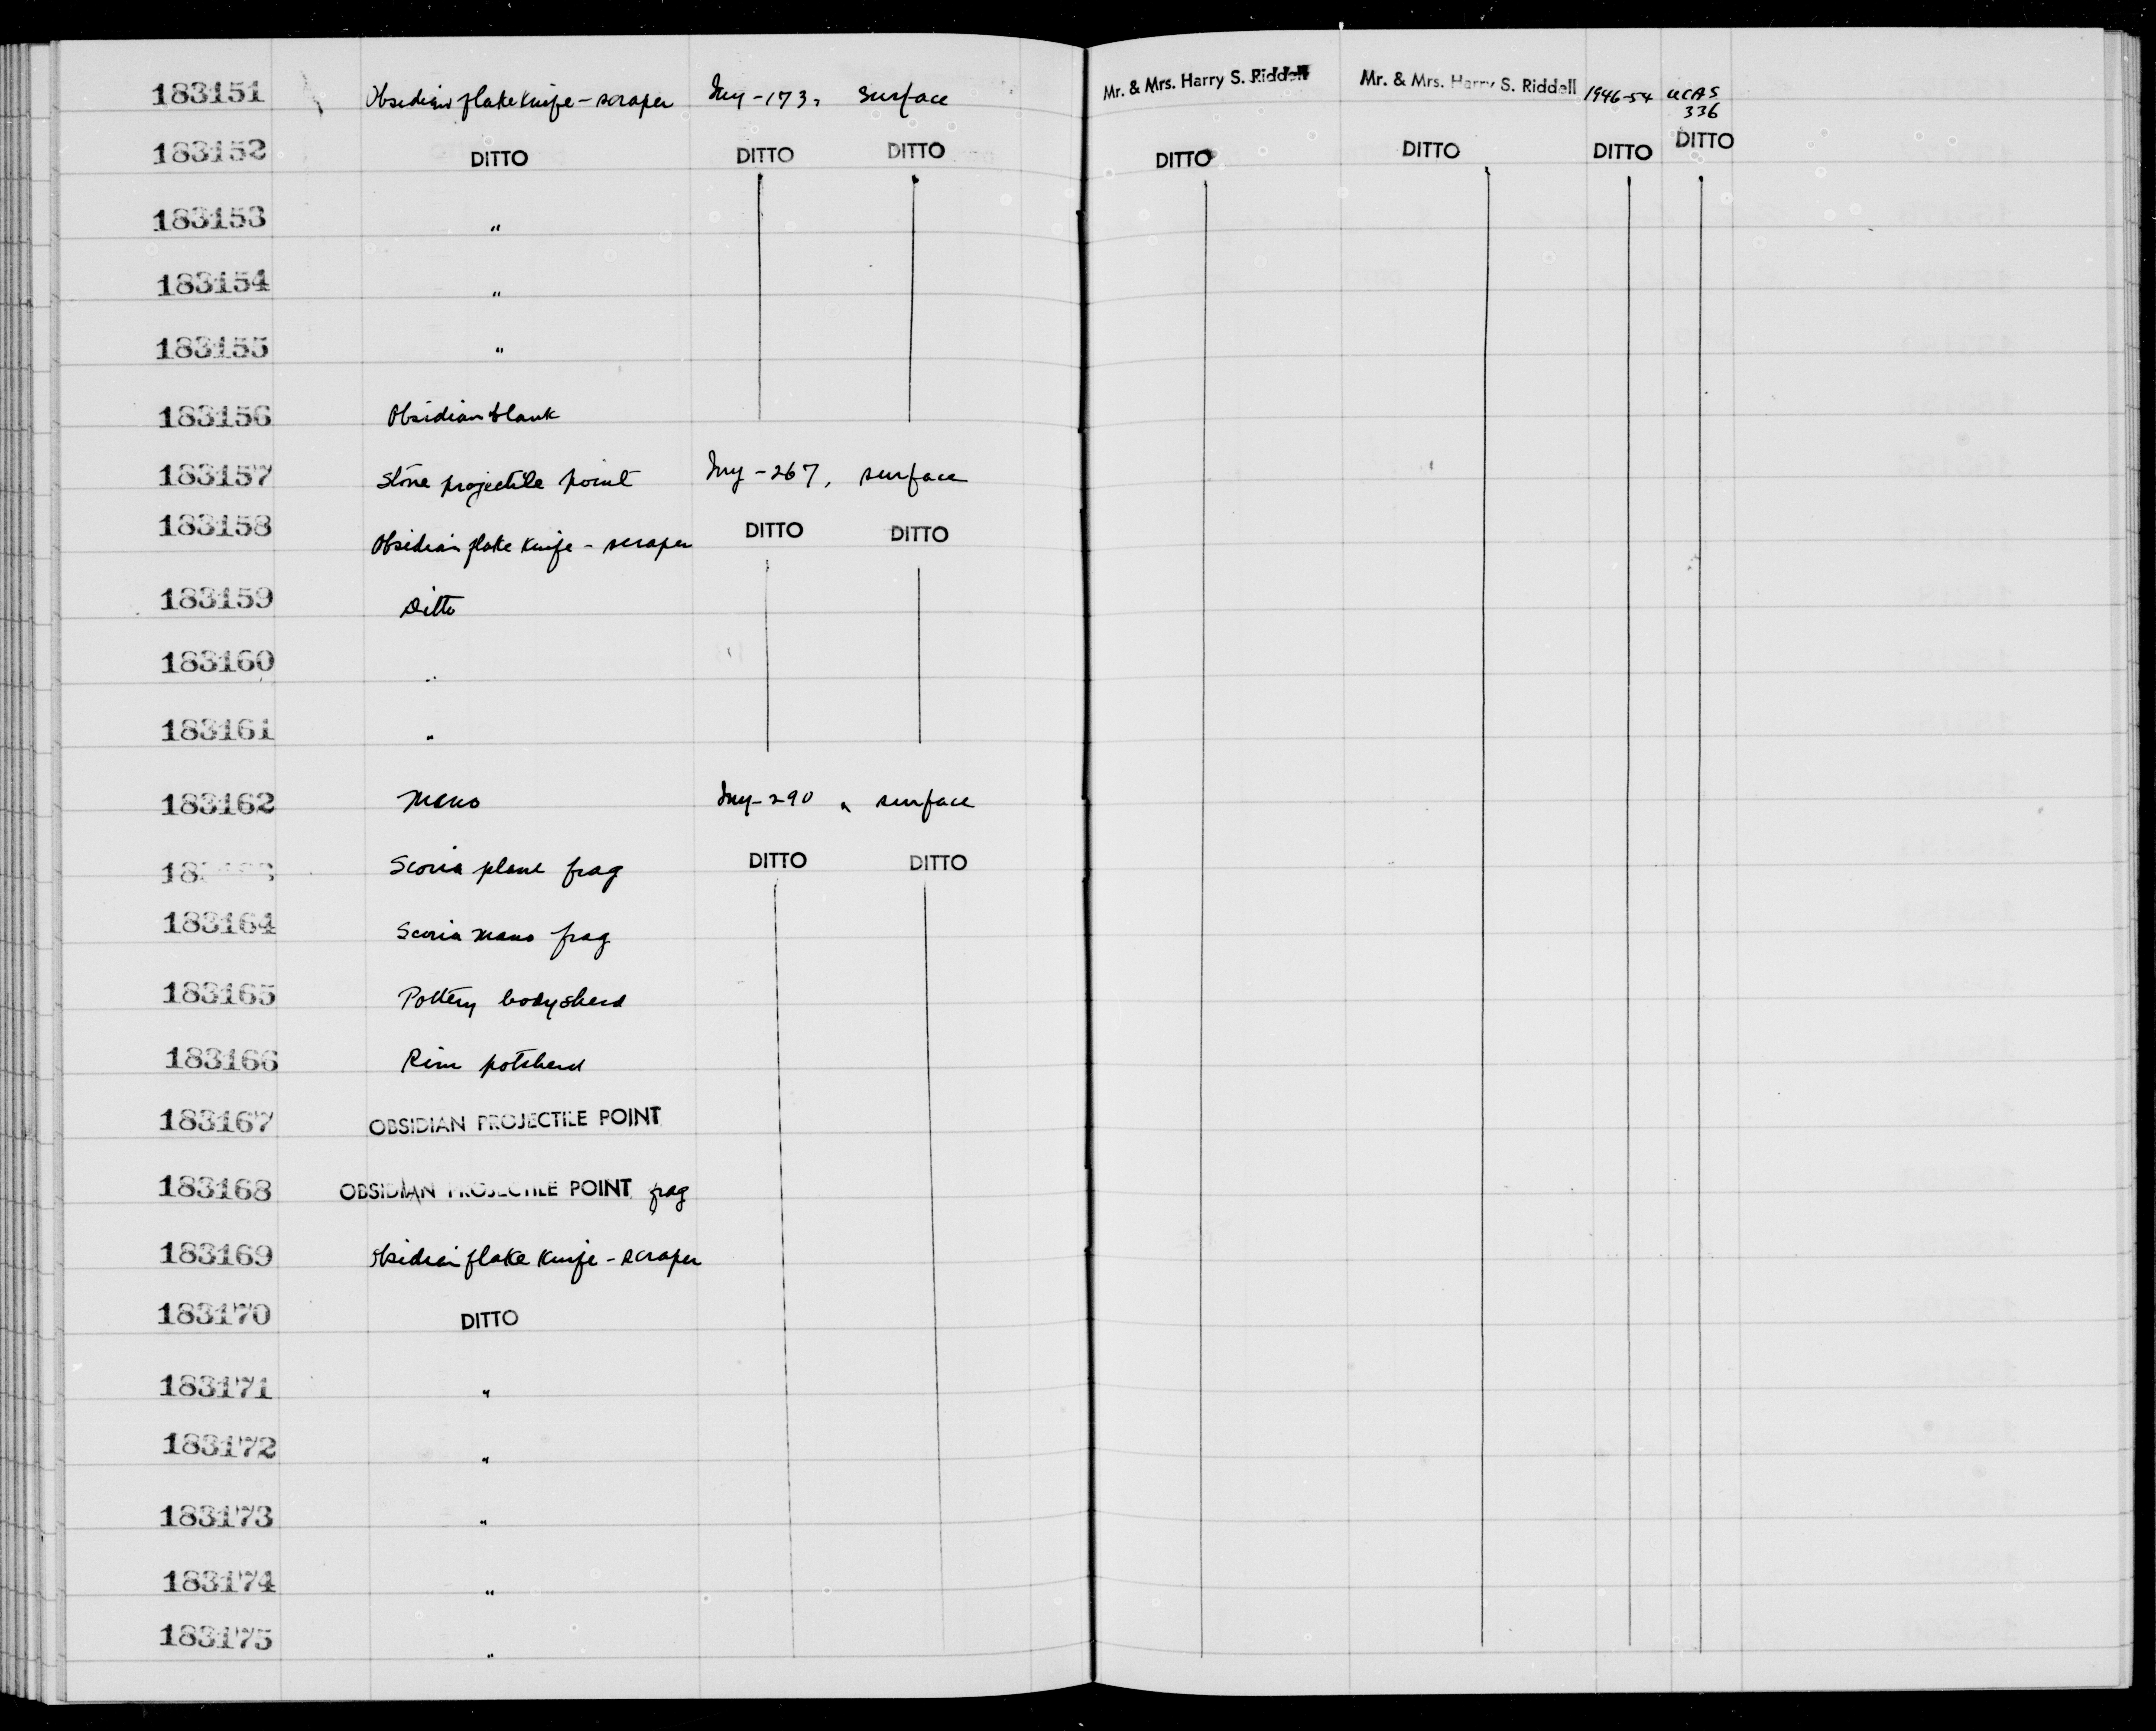 183151 Obsidian flake knife - scraper Iny - 173, surface Mr. & Mrs. Harry S. Riddell Mr. & Mrs. Harry S. Riddell 1946-54 UCAS 336
183152 DITTO DITTO DITTO DITTO DITTO DITTO DITTO
183153 "
183154 "
183155 "
183156 Obsidian blank
183157 Stone projectile point Iny - 267, surface
183158 Obsidian flake knife - scraper DITTO DITTO
183159 Ditto
183160 "
183161 "
183162 Mano Iny - 290, surface
18 Scoria plane frag DITTO DITTO
183164 Scoria mano frag
183165 Pottery bodysherd
183166 Rim potsherd
183167 OBSIDIAN PROJECTILE POINT
183168 OBSIDIAN PROJECTILE POINT frag
183169 Obsidian flake knife - scraper
183170 DITTO
183171 "
183172 "
183173 "
183174 "
183175 "